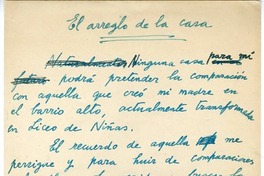 El arreglo de la casa
Naturalmente Ninguna casa para mi
futuro podrá pretender la comparación
con aquella que creó mi madre en
el barrio alto, actualmente transformada
en Liceo de Niñas.
El recuerdo de aquella me
persigue y para huir de comparaciones